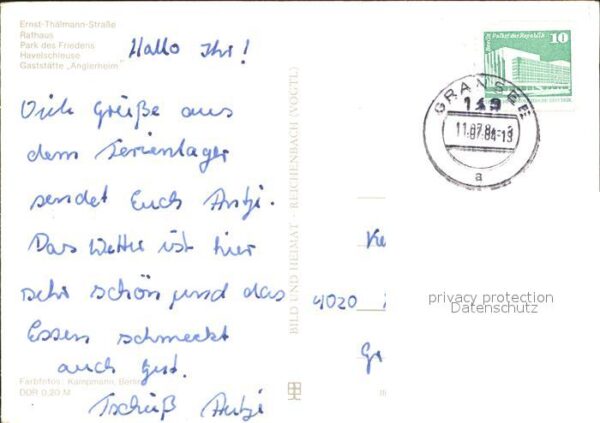 Ernst-Thälmann-Straße
Rathaus
Park des Friedens
Havelschleuse
Gaststätte „Anglerheim"
Hallo Ihr!
Viele Grüße aus
dem Ferienlager
sendet Euch Antje.
Das Wetter ist hier
sehr schön und das
Essen schmeckt
auch gut.
Tschüß Antje
Farbfotos: Kampmann, Berlin
DDR 0,20 M
BILD UND HEIMAT - REICHENBACH (VOGTL)
10
Palast der Republik
GRANSEE
a
4020
privacy protection
Datenschutz